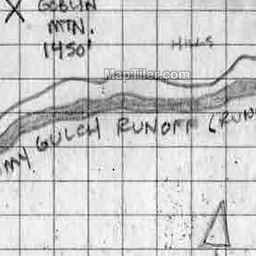 GOBLIN
MTN.
1450'
HILLS
MapTiler.com
GULCH RUNOFF (RUN